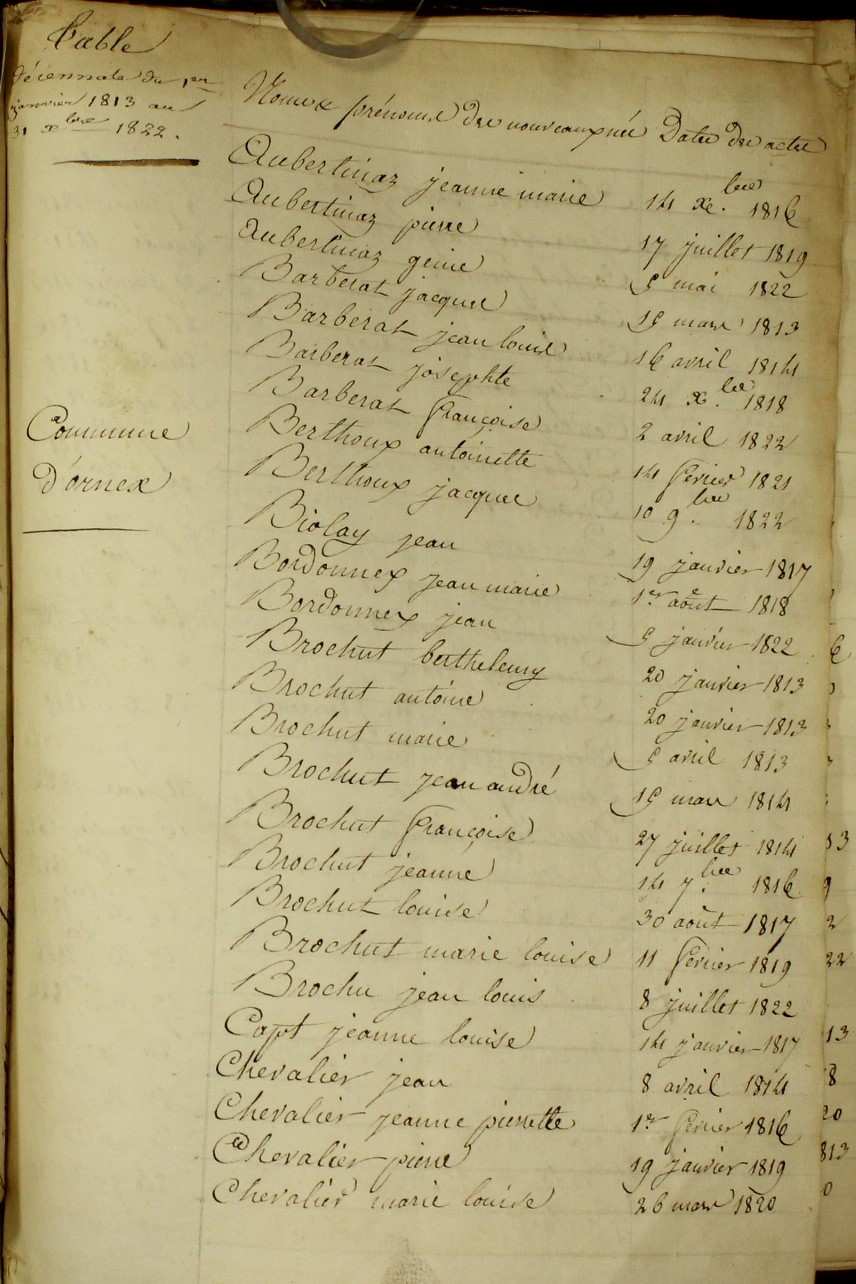 Table
décennale du 1er
janvier 1813 au
31 xbre 1822.
Commune
d'ornex
Noms & prénoms des nouveaux nés Dates des actes
Aubertinaz jeanne marie 14 xe.bre 1816
Aubertinaz pierre 17 juillet 1819
Aubertinaz genie 5 mai 1822
Barberat jacques 15 mars 1813
Barberat jean louis 16 avril 1814
Barberat josephte 24 x.bre 1818
Barberat françoise 2 avril 1822
Berthoux antoinette 14 février 1821
Berthoux jacques 10 9.bre 1822
Biolay jean 19 janvier 1817
Bordonnex jean marie 1er août 1818
Bordonnex jean 5 janvier 1822
Brochut berthelemy 20 janvier 1813
Brochut antoine 20 janvier 1813
Brochut marie 5 avril 1813
Brochut jean andré 15 mars 1814
Brochut françoise 27 juillet 1814
Brochut jeanne 14 7.bre 1816
Brochut louise 30 août 1817
Brochut marie louise 11 février 1819
Brochu jean louis 8 juillet 1822
Capt jeanne louise 14 janvier 1817
Chevalier jean 8 avril 1814
Chevalier jeanne pierrette 1er février 1816
Chevalier pierre 19 janvier 1819
Chevalier marie louise 26 mars 1820